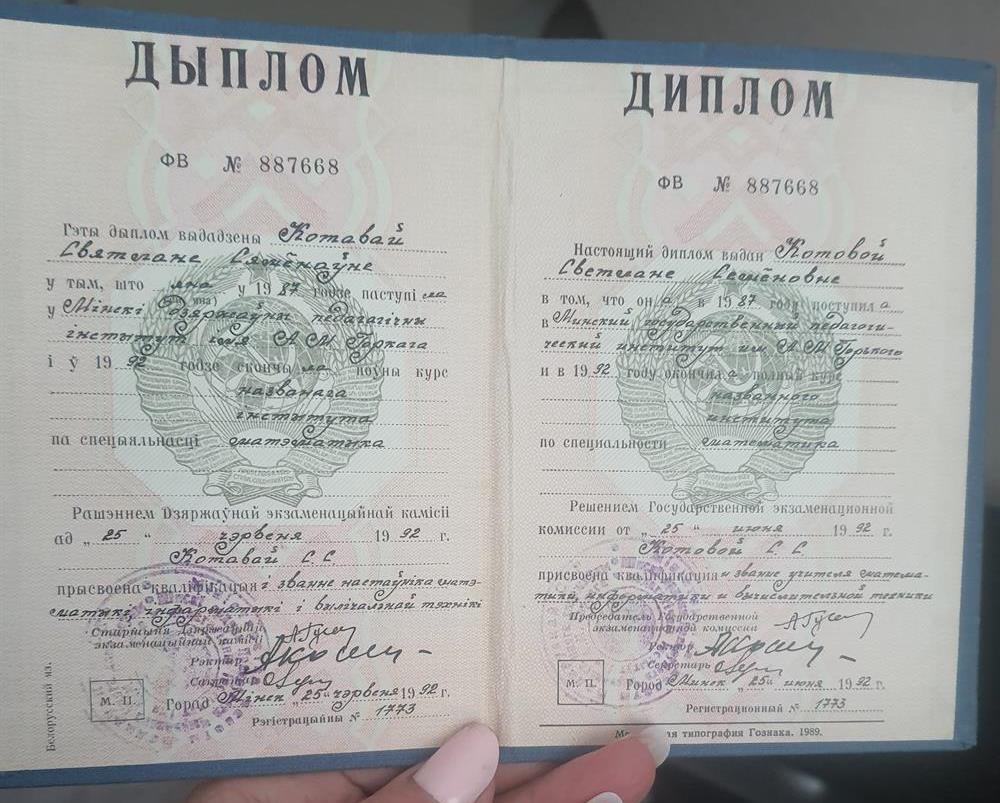 ДЫПЛОМ
ФВ № 887668
Гэты дыплом выдадзены Котавай
Святлане Сямёнаўне
у тым, што яна у 1987 годзе паступіла
у Мінскі дзяржаўны педагагічны
інстытут імя А.М. Горкага
і ў 1992 годзе скончыла поўны курс
названага
інстытута
па спецыяльнасці матэматыка
Рашэннем Дзяржаўнай экзаменацыйнай камісіі
ад „25“ чэрвеня 1992 г.
Котавай С. С.
прысвоена кваліфікацыя і званне настаўніка матэ-
матыкі, інфарматыкі і вылічальнай тэхнікі
Старшыня Дзяржаўнай
экзаменацыйнай камісіі
Рэктар
Сакратар
М. П.
Горад Мінск „25“ чэрвеня 1992 г.
Рэгістрацыйны № 1773
Белорусский яз.
ДИПЛОМ
ФВ № 887668
Настоящий диплом выдан Котовой
Светлане Семёновне
в том, что она в 1987 году поступила
в Минский государственный педагоги-
ческий институт им. А.М. Горького
и в 1992 году окончила полный курс
названного
института
по специальности математика
Решением Государственной экзаменационной
комиссии от „25“ июня 1992 г.
Котовой С. С.
присвоена квалификация и звание учителя матема-
тики, информатики и вычислительной техники
Председатель Государственной
экзаменационной комиссии
Ректор
Секретарь
М. П.
Город Минск „25“ июня 1992 г.
Регистрационный № 1773
типография Гознака. 1989.